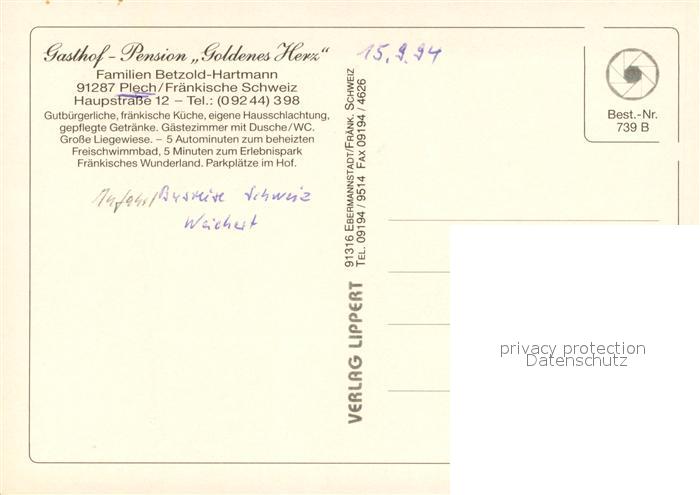 Gasthof - Pension „Goldenes Herz"
Familien Betzold-Hartmann
91287 Plech/Fränkische Schweiz
Haupstraße 12 – Tel.: (0 92 44) 3 98
Gutbürgerliche, fränkische Küche, eigene Hausschlachtung,
gepflegte Getränke. Gästezimmer mit Dusche/WC.
Große Liegewiese. – 5 Autominuten zum beheizten
Freischwimmbad, 5 Minuten zum Erlebnispark
Fränkisches Wunderland. Parkplätze im Hof.
Anfahrt Busreise Schweiz
Weichert
15.9.94
91316 EBERMANNSTADT/FRÄNK. SCHWEIZ
TEL. 09194 / 9514 FAX 09194 / 4626
VERLAG LIPPERT
Best.-Nr.
739 B
privacy protection
Datenschutz